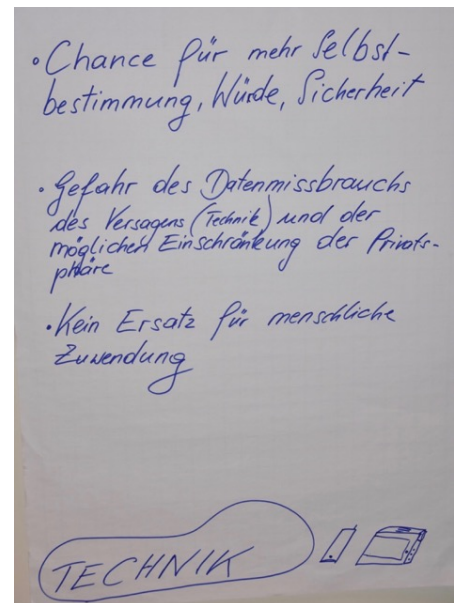 • Chance für mehr Selbst-
bestimmung, Würde, Sicherheit
• Gefahr des Datenmissbrauchs
des Versagens (Technik) und der
möglichen Einschränkung der Privats-
phäre
• Kein Ersatz für menschliche
Zuwendung
TECHNIK